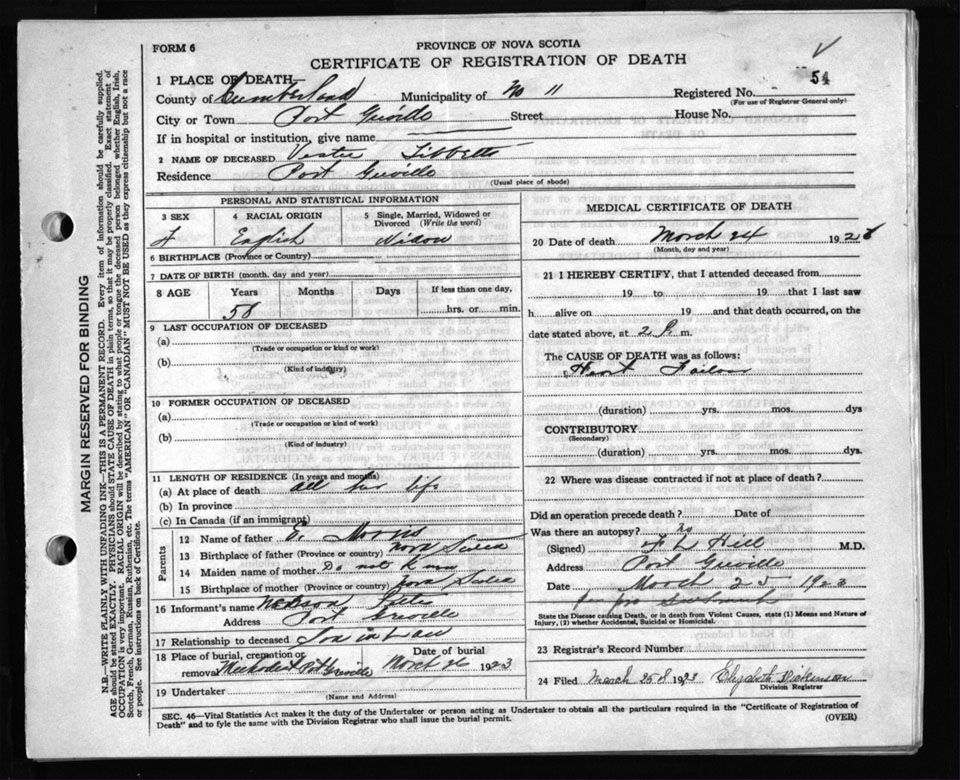 FORM 6
PROVINCE OF NOVA SCOTIA
CERTIFICATE OF REGISTRATION OF DEATH
54
1 PLACE OF DEATH—
County of Cumberland Municipality of No 11 Registered No.
(For use of Registrar General only)
City or Town Port Greville Street House No.
If in hospital or institution, give name
2 NAME OF DECEASED Tibbetts
Residence Port Greville
(Usual place of abode)
PERSONAL AND STATISTICAL INFORMATION
3 SEX
F
4 RACIAL ORIGIN
English
5 Single, Married, Widowed or Divorced (Write the word)
Widow
6 BIRTHPLACE (Province or Country)
7 DATE OF BIRTH (month, day and year)
8 AGE Years Months Days If less than one day,
58 hrs. or min.
9 LAST OCCUPATION OF DECEASED
(a)
(Trade or occupation or kind or work)
(b)
(Kind of industry)
10 FORMER OCCUPATION OF DECEASED
(a)
(Trade or occupation or kind of work)
(b)
(Kind of industry)
11 LENGTH OF RESIDENCE (In years and months)
(a) At place of death all her life
(b) In province
(c) In Canada (if an immigrant)
Parents
12 Name of father E. Morris
13 Birthplace of father (Province or country) Nova Scotia
14 Maiden name of mother Do not Know
15 Birthplace of mother (Province or country) Nova Scotia
16 Informant's name
Address Port Greville
17 Relationship to deceased Son in Law
18 Place of burial, cremation or removal Methodist Pt Greville
Date of burial
March 26 1923
19 Undertaker
(Name and Address)
MEDICAL CERTIFICATE OF DEATH
20 Date of death March 24 192
(Month, day and year)
21 I HEREBY CERTIFY, that I attended deceased from
19 to 19 that I last saw
h alive on 19 and that death occurred, on
date stated above, at 2 P. m.
The CAUSE OF DEATH was as follows:
Heart Failure
(duration) yrs. mos. dys
CONTRIBUTORY
(Secondary)
(duration) yrs. mos. dys.
22 Where was disease contracted if not at place of death?
Did an operation precede death? Date of
Was there an autopsy? No
(Signed) Hill M.D.
Address Port Greville
Date March 25 1923
State the Disease causing Death, or in death from Violent Causes, state (1) Means and Nature of Injury, (2) whether Accidental, Suicidal or Homicidal.
23 Registrar's Record Number
24 Filed March 25th 1923 Elizabeth Dickinson
Division Registrar
SEC. 46—Vital Statistics Act makes it the duty of the Undertaker or person acting as Undertaker to obtain all the particulars required in the "Certificate of Registration of
Death" and to fyle the same with the Division Registrar who shall issue the burial permit. (OVER)
MARGIN RESERVED FOR BINDING
N.B.—WRITE PLAINLY WITH UNFADING INK—THIS IS A PERMANENT RECORD. Every item of information should be carefully supplied.
AGE should be stated EXACTLY. PHYSICIANS should STATE CAUSE OF DEATH in plain terms, so that it may be properly classified. Exact statement of
OCCUPATION is very important. RACIAL ORIGIN will be described by stating to what people or tongue the deceased person belonged whether English, Irish,
Scotch, French, German, Russian, Ruthenian, etc. The terms "AMERICAN" OR "CANADIAN" MUST NOT BE USED as they express citizenship but not a race
or people. See instructions on back of Certificate.